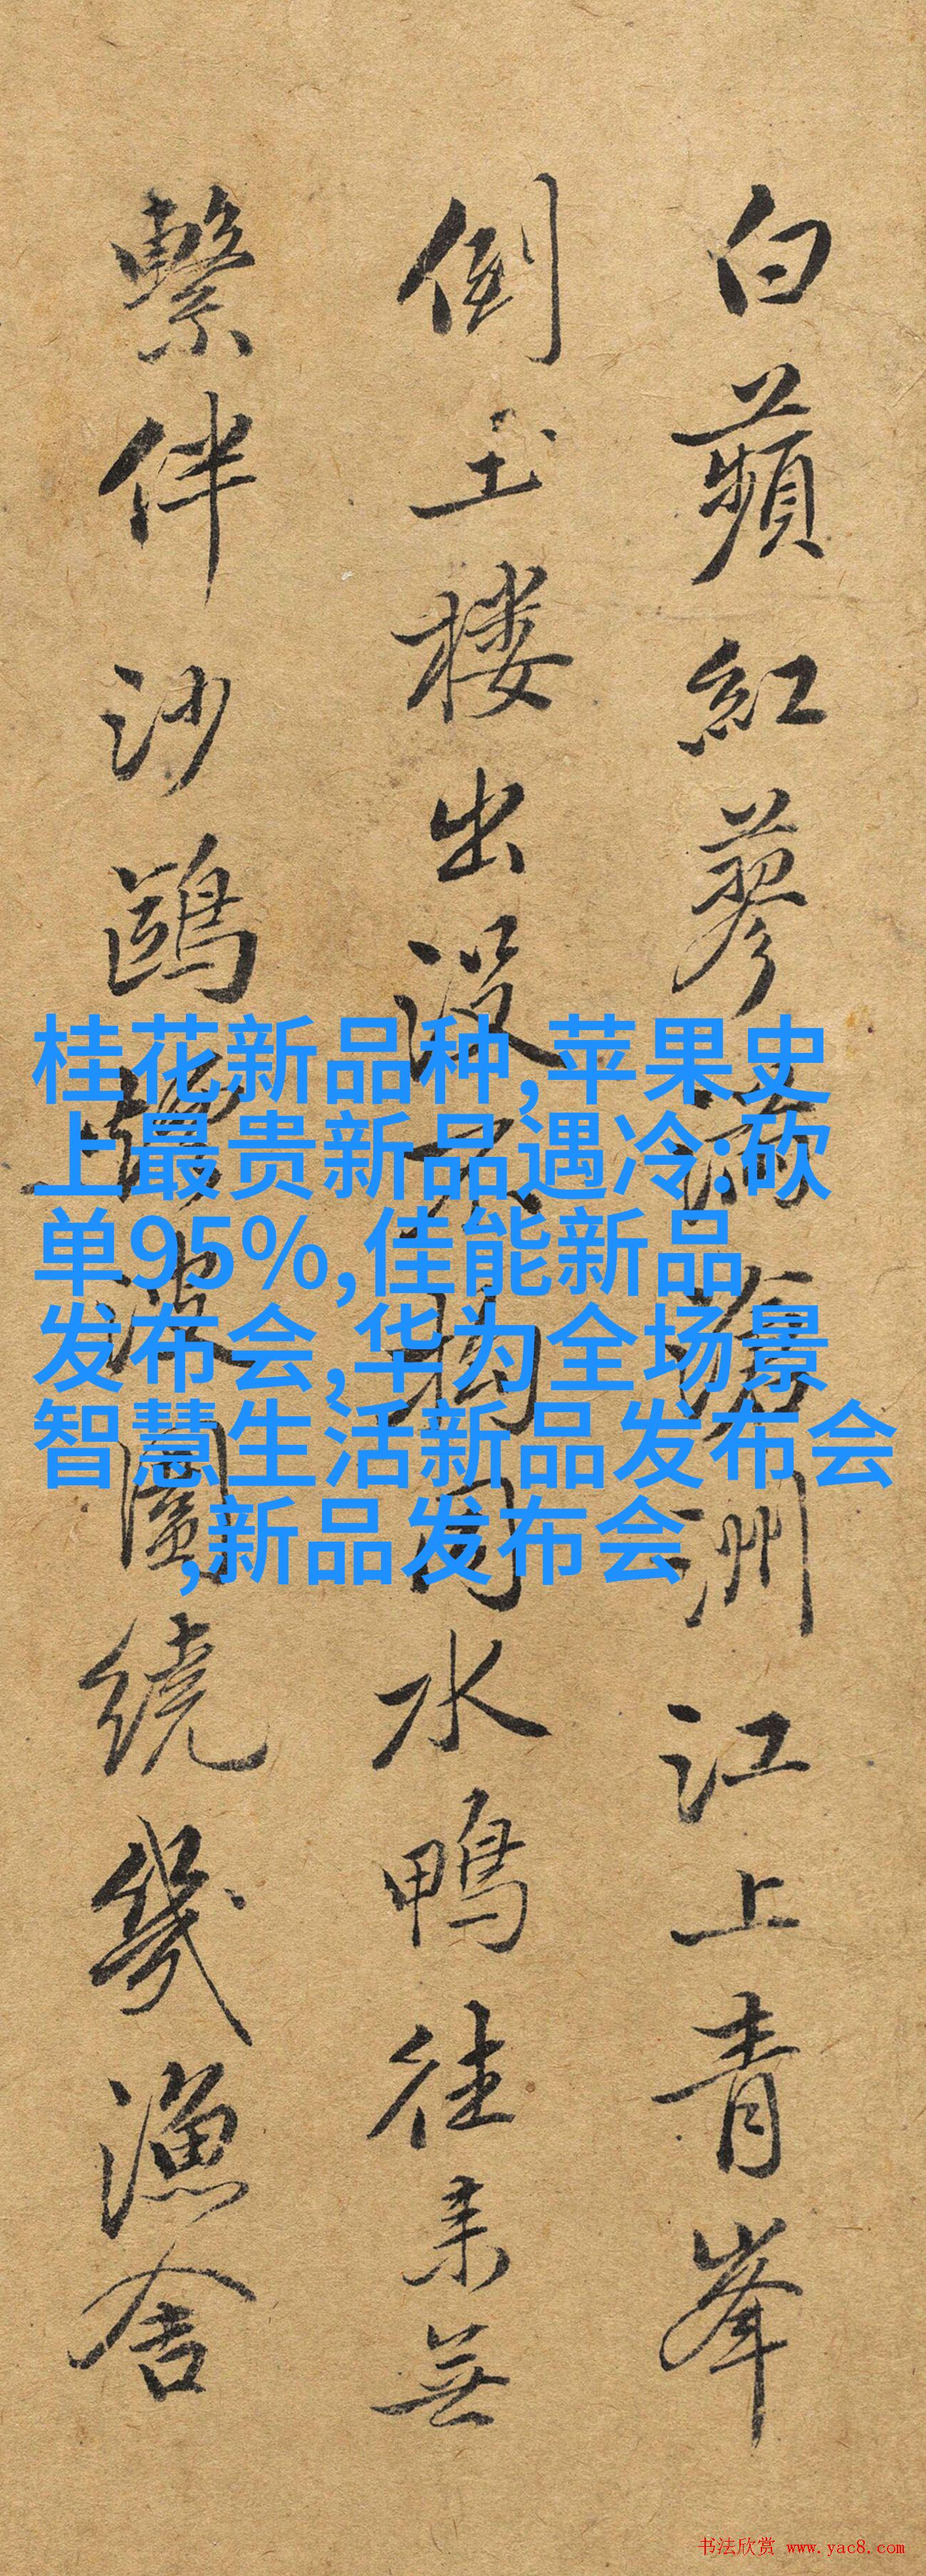 白蘋紅蓼滿滄洲江上青峯
倒玉楼出没不拘同水鴨往来無
繫伴沙鷗波圍繞幾漁舍
桂花新品种,苹果史
上最贵新品遇冷:砍
单95%,佳能新品
发布会,华为全场景
智慧生活新品发布会
,新品发布会
书法欣赏 www.yac8.com